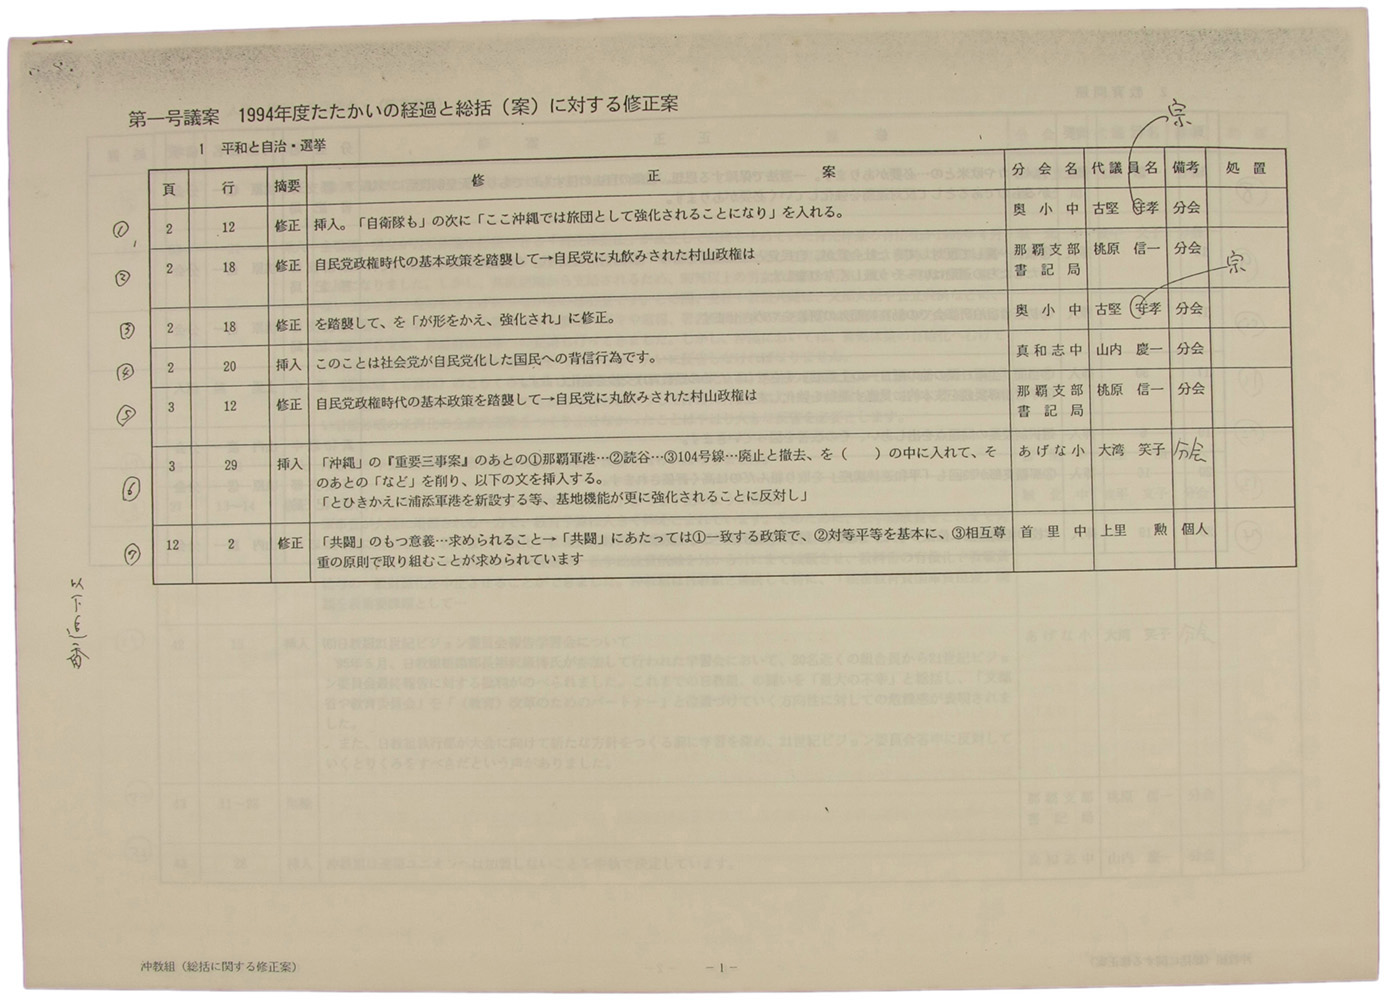 第一号議案　1994年度たたかいの経過と総括（案）に対する修正案
宗
1　平和と自治・選挙
頁　行　摘要　修　正　案　分会名　代議員名　備考　処置
① 2　12　修正　挿入。「自衛隊も」の次に「ここ沖縄では旅団として強化されることになり」を入れる。　奥小中　古堅　守孝　分会
② 2　18　修正　自民党政権時代の基本政策を踏襲して→自民党に丸飲みされた村山政権は　那覇支部　桃原　信一　分会
書記局
宗
③ 2　18　修正　を踏襲して、を「が形をかえ、強化され」に修正。　奥小中　古堅　守孝　分会
④ 2　20　挿入　このことは社会党が自民党化した国民への背信行為です。　真和志中　山内　慶一　分会
⑤ 3　12　修正　自民党政権時代の基本政策を踏襲して→自民党に丸飲みされた村山政権は　那覇支部　桃原　信一　分会
書記局
⑥ 3　29　挿入　「沖縄」の『重要三事案』のあとの①那覇軍港…②読谷…③104号線…廃止と撤去、を（　　）の中に入れて、そ　あげな小　大湾　笑子　分会
のあとの「など」を削り、以下の文を挿入する。
「とひきかえに浦添軍港を新設する等、基地機能が更に強化されることに反対し」
⑦ 12　2　修正　「共闘」のもつ意義…求められること→「共闘」にあたっては①一致する政策で、②対等平等を基本に、③相互尊　首里中　上里　勲　個人
重の原則で取り組むことが求められています
以下追番
沖教組（総括に関する修正案）
－1－